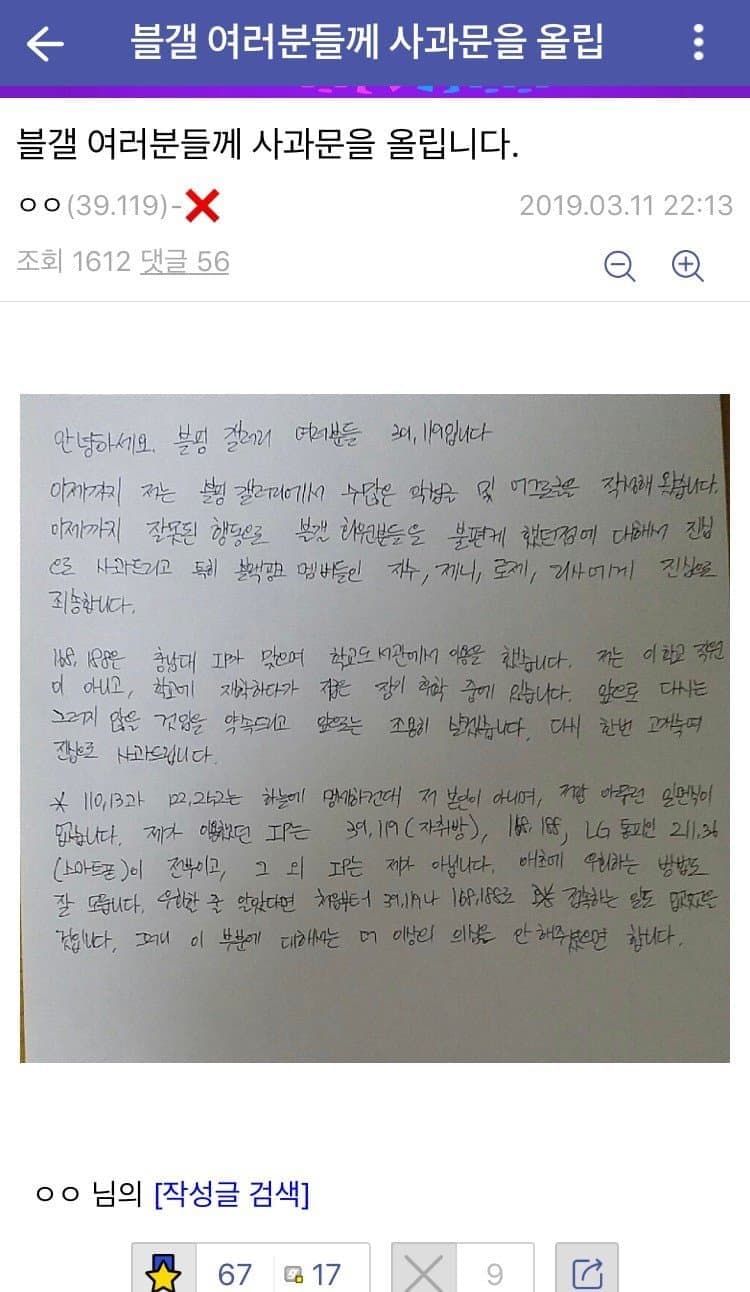 블갤 여러분들께 사과문을 올립
블갤 여러분들께 사과문을 올립니다.
ㅇㅇ(39.119)-❌
2019.03.11 22:13
조회 1612 댓글 56
안녕하세요. 블핑 갤러리 여러분들 39,119입니다
이제까지 저는 블핑 갤러리에서 수많은 악성글 및 어그로글을 작성해 왔습니다.
이제까지 잘못된 행동으로 블갤 회원분들을 불편케 했던점에 대해서 진심
으로 사과드리고 특히 블랙핑크 멤버들인 지수, 제니, 로제, 리사에게 진심으로
죄송합니다.
168, 188은 충남대 IP가 맞으며 학교도서관에서 이용을 했습니다. 저는 이 학교 직원
이 아니고, 학교에 재학하다가 지금은 장기 휴학 중에 있습니다. 앞으로 다시는
그러지 않을 것임을 약속드리고 앞으로는 조용히 살겠습니다. 다시 한번 고개숙여
진심으로 사과드립니다.
* 110,13과 122,252는 하늘에 맹세하건대 저 본인이 아니며, 저랑 아무런 일면식이
없습니다. 제가 이용했던 IP는 39,119(자취방), 168,188, LG 통피인 211.36
(스마트폰)이 전부이고, 그 외 IP는 제가 아닙니다. 애초에 우회하는 방법도
잘 모릅니다. 우회할 줄 알았다면 처음부터 39,119나 168,188로 접속하는 일도 없었을
것입니다. 그러니 이 부분에 대해서는 더 이상의 의심을 안 해주셨으면 합니다.
ㅇㅇ 님의 [작성글 검색]
67 17 9